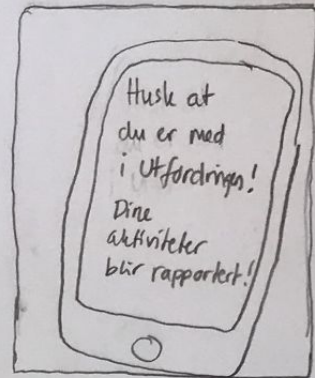 Husk at
du er med
i Utfordringen!
Dine
aktiviteter
blir rapportert!